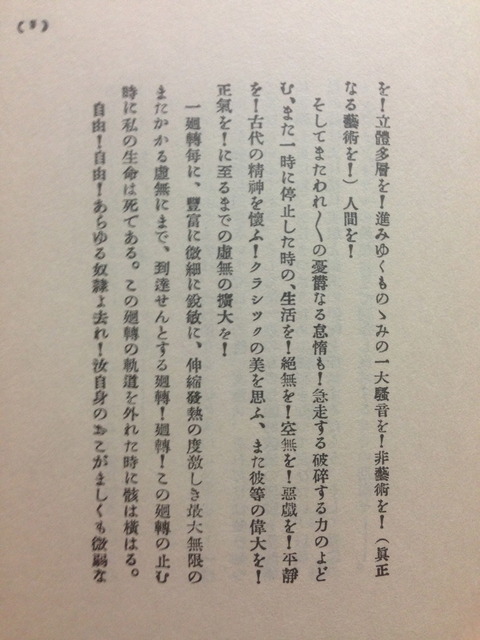 (5)
を！立體多層を！進みゆくものゝみの一大騷音を！非藝術を！（眞正
なる藝術を！）人間を！
そしてまたわれ〱の憂欝なる怠惰も！急走する破碎する力のよど
む、また一時に停止した時の、生活を！絕無を！空無を！惡戲を！平靜
を！古代の精神を懷ふ！クラシックの美を思ふ、また彼等の偉大を！
正氣を！に至るまでの虛無の擴大を！
一廻轉每に、豐富に微細に銳敏に、伸縮發熱の度激しき最大無限の
またかかる虛無にまで、到達せんとする廻轉！廻轉！この廻轉の止む
時に私の生命は死である。この廻轉の軌道を外れた時に骸は橫はる。
自由！自由！あらゆる奴隸よ去れ！汝自身のおこがましくも微弱な